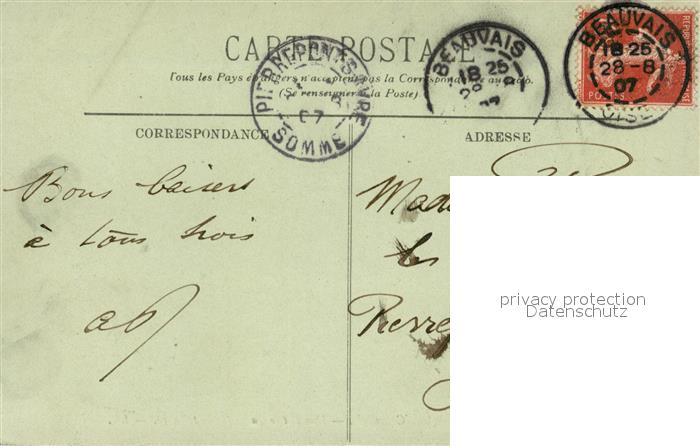 CARTE POSTALE
Tous les Pays étrangers n'acceptent pas la Correspondance au recto.
(Se renseigner à la Poste)
PIERREPONT-S-AVRE
07
SOMME
BEAUVAIS
18 25
BEAUVAIS
18 25
28-8
07
OISE
POSTES
CORRESPONDANCE
ADRESSE
Bons baisers
à tous trois
Mad
les
Pierrep
privacy protection
Datenschutz